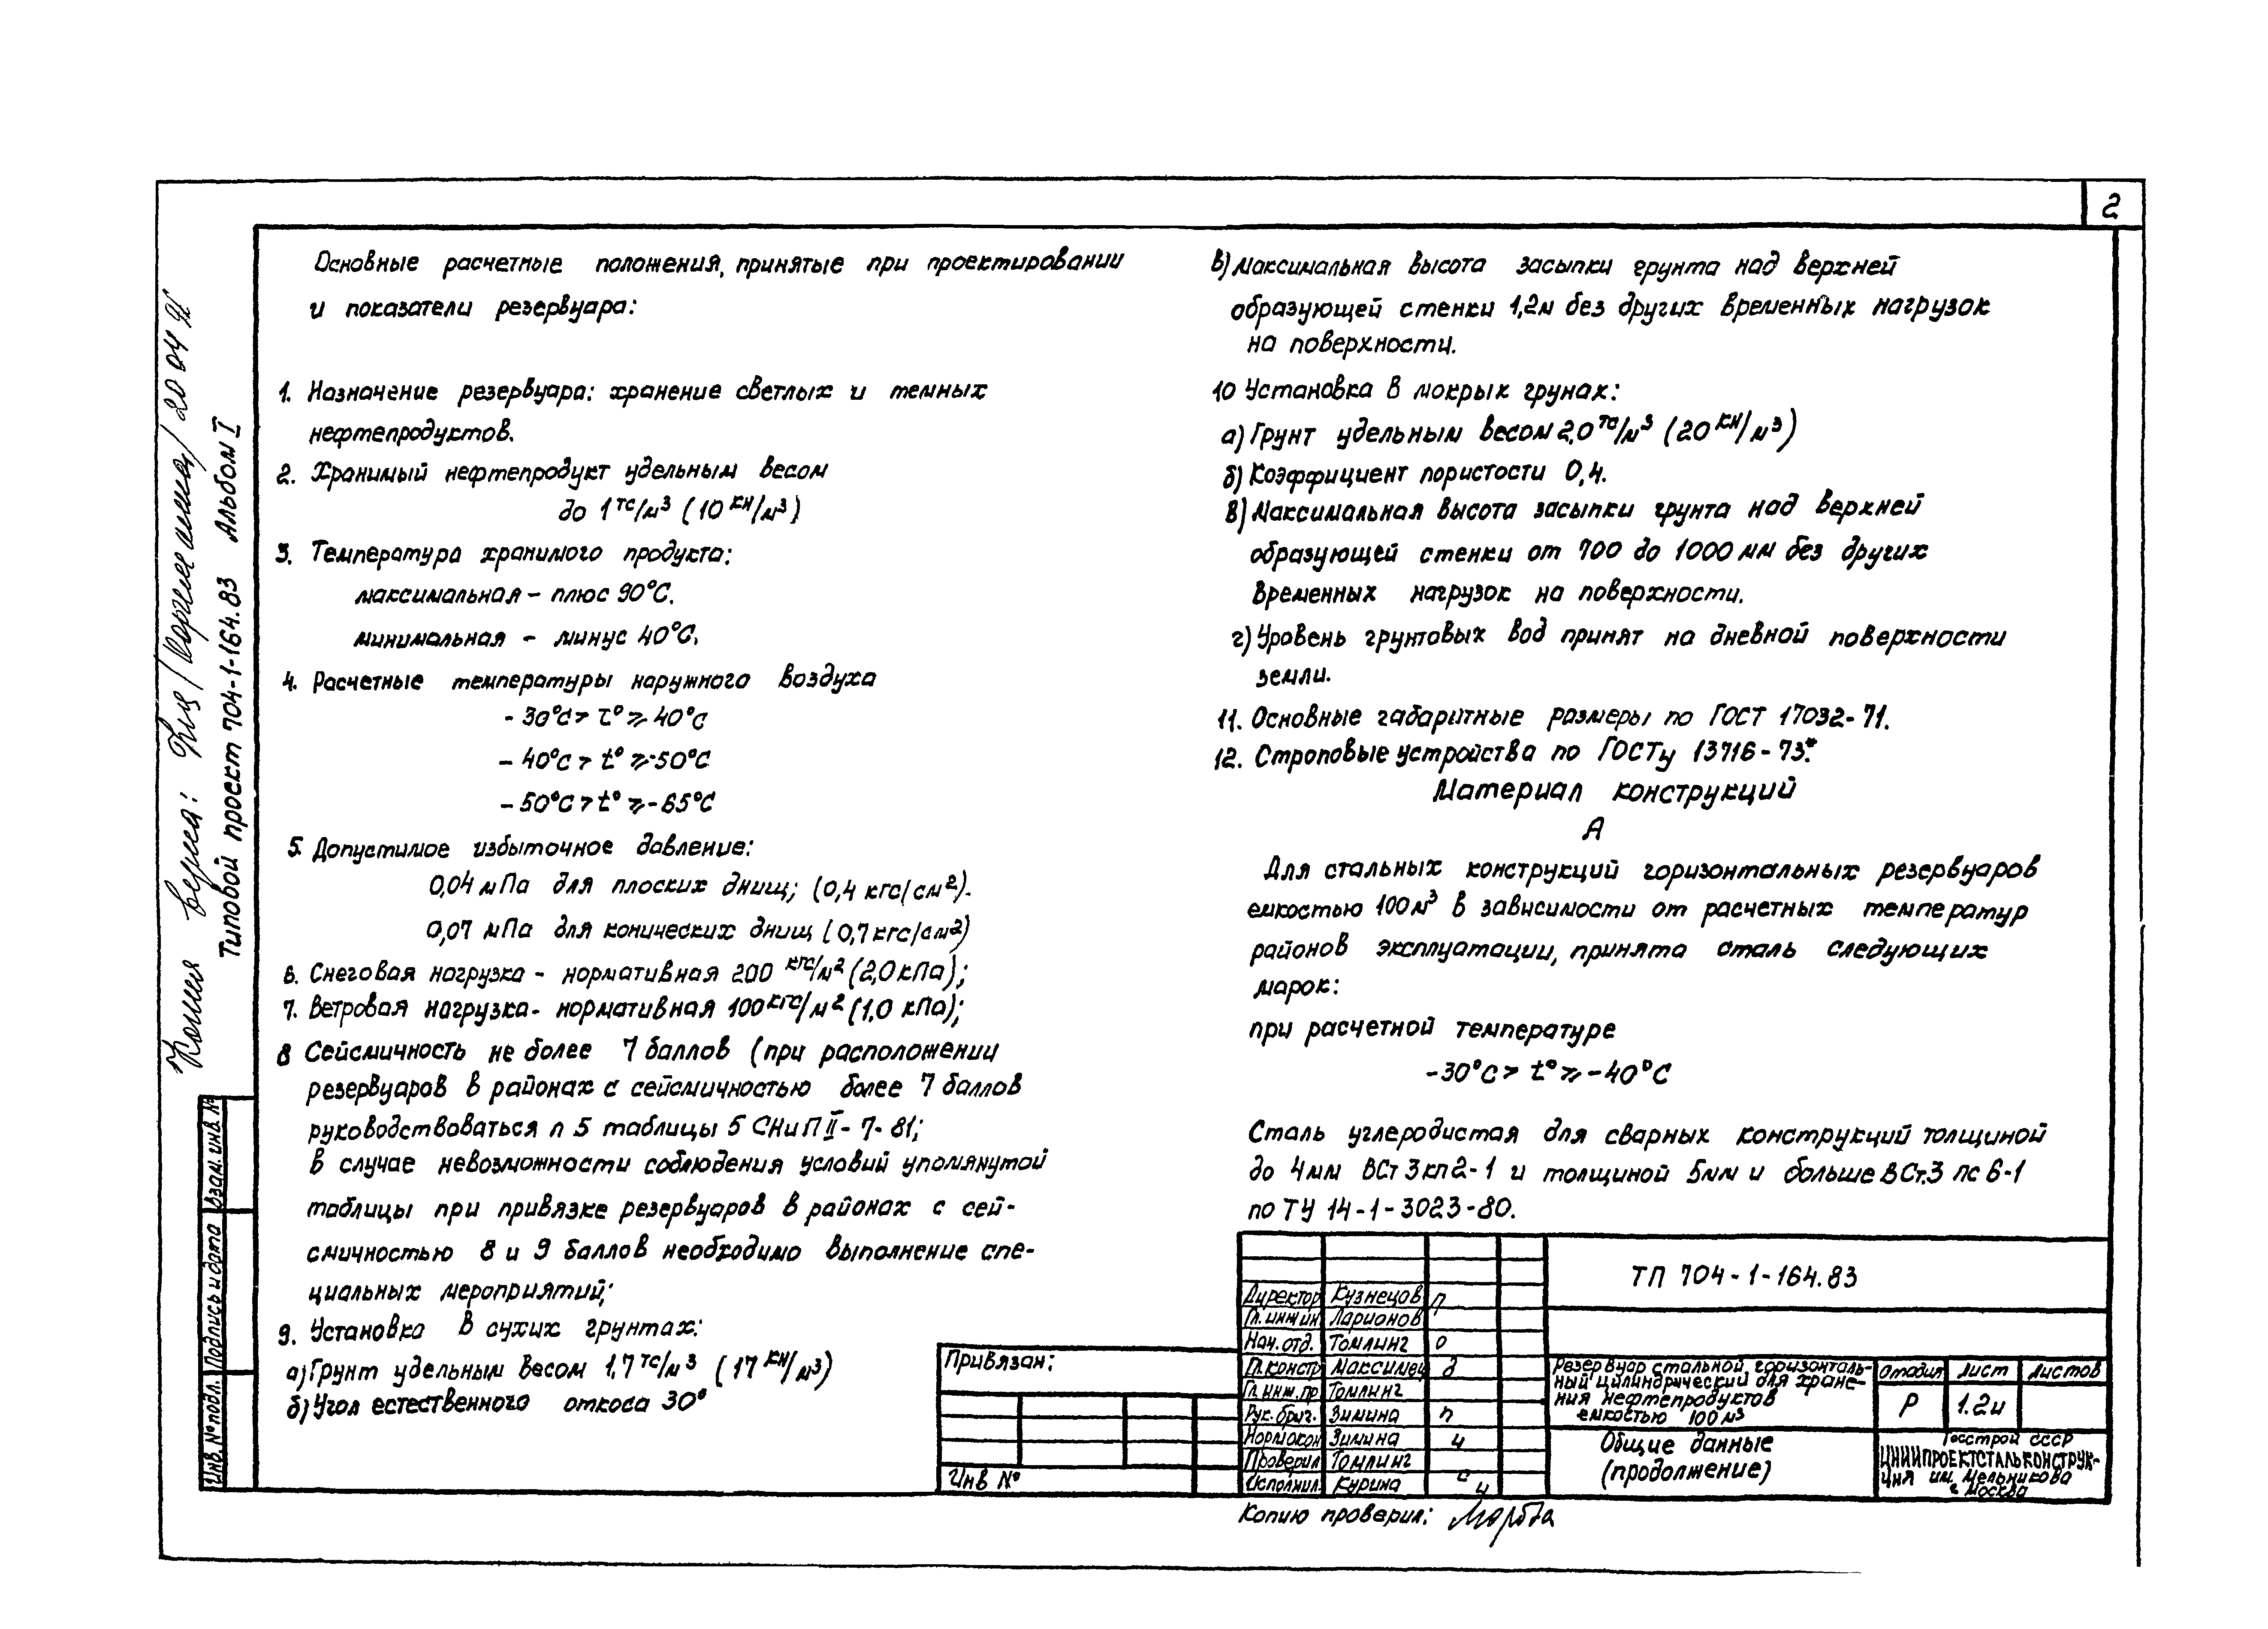 2
Основные расчетные положения, принятые при проектировании
и показатели резервуара:
1. Назначение резервуара: хранение светлых и темных
нефтепродуктов.
2. Хранимый нефтепродукт удельным весом
до 1 тс/м³ (10 кн/м³)
3. Температура хранимого продукта:
максимальная – плюс 90°С.
минимальная – минус 40°С.
4. Расчетные температуры наружного воздуха
- 30°С > t° ⩾ 40°С
- 40°С > t° ⩾ -50°С
- 50°С > t° ⩾ -65°С
5. Допустимое избыточное давление:
0,04 мПа для плоских днищ; (0,4 кгс/см²).
0,07 мПа для конических днищ (0,7 кгс/см²)
6. Снеговая нагрузка - нормативная 200 кгс/м² (2,0 кПа);
7. Ветровая нагрузка - нормативная 100 кгс/м² (1.0 кПа);
8 Сейсмичность не более 7 баллов (при расположении
резервуаров в районах с сейсмичностью более 7 баллов
руководствоваться п 5 таблицы 5 СНиП II - 7- 81;
в случае невозможности соблюдения условий упомянутой
таблицы при привязке резервуаров в районах с сей-
смичностью 8 и 9 баллов необходимо выполнение спе-
циальных мероприятий;
9. Установка в сухих грунтах:
а) Грунт удельным весом 1,7 тс/м³ (17 кн/м³)
б) Угол естественного откоса 30°
в) Максимальная высота засыпки грунта над верхней
образующей стенки 1,2м без других временных нагрузок
на поверхности.
10 Установка в мокрых грунах:
а) Грунт удельным весом 2,0 тс/м³ (20 кн/м³)
б) Коэффициент пористости 0,4.
в) Максимальная высота засыпки грунта над верхней
образующей стенки от 700 до 1000 мм без других
временных нагрузок на поверхности.
г) Уровень грунтовых вод принят на дневной поверхности
земли.
11. Основные габаритные размеры по ГОСТ 17032-71.
12. Строповые устройства по ГОСТу 13716-73*.
Материал конструкций
А
Для стальных конструкций горизонтальных резервуаров
емкостью 100 м³ в зависимости от расчетных температур
районов эксплуатации, принята сталь следующих
марок:
при расчетной температуре
-30°С > t° ⩾ -40°С
Сталь углеродистая для сварных конструкций толщиной
до 4мм ВСт 3кп2-1 и толщиной 5мм и больше ВСт.3 пс 6-1
по ТУ 14-1-3023-80.
Типовой проект 704-1-164.83 Альбом I
Копия верна: 20 04
Взам. инв. №
Подпись и дата
Инв. № подл.
Привязан:
Инв №
Директор Кузнецов
Гл. инж ин Ларионов
Нач. отд. Томлинг
Гл. констр Максимец
Гл. инж. пр Томлинг
Рук. бриг. Зимина
Нормокон Зимина
Проверил Томлинг
Исполнил Курина
ТП 704-1-164.83
Резервуар стальной, горизонталь-
ный цилиндрический для хране-
ния нефтепродуктов
емкостью 100 м³
Стадия Лист Листов
Р 1.2и
Общие данные
(продолжение)
Госстрой СССР
ЦНИИПРОЕКТСТАЛЬКОНСТРУК-
ЦИЯ им. Мельникова
г. Москва
Копию проверил: